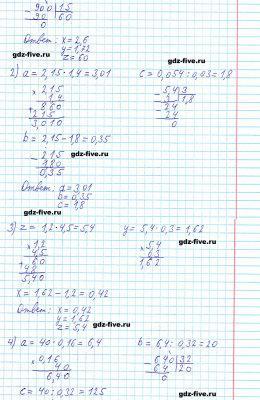 900 | 15
90 60
0
Ответ: x = 2,6
y = 1,72
z = 60
gdz-five.ru
2) a = 2,15 · 1,4 = 3,01 c = 0,054 : 0,03 = 1,8
× 2,15
1,4
860
+ 215
3,010
5,4 | 3
3 1,8
24
24
0
gdz-five.ru
b = 2,15 - 1,8 = 0,35
2,15
1,80
0,35
gdz-five.ru
Ответ: a = 3,01
b = 0,35
c = 1,8
gdz-five.ru
gdz-five.ru
3) z = 1,2 · 4,5 = 5,4 y = 5,4 · 0,3 = 1,62
× 1,2
4,5
60
48
5,40
× 5,4
0,3
1,62
gdz-five.ru
gdz-five.ru
x = 1,62 - 1,2 = 0,42
Ответ: x = 0,42
y = 1,62
z = 5,4
gdz-five.ru
4) a = 40 · 0,16 = 6,4 b = 6,4 : 0,32 = 20
× 0,16
40
6,40
640 | 32
64 20
0
gdz-five.ru
c = 40 : 0,32 = 125
gdz-five.ru